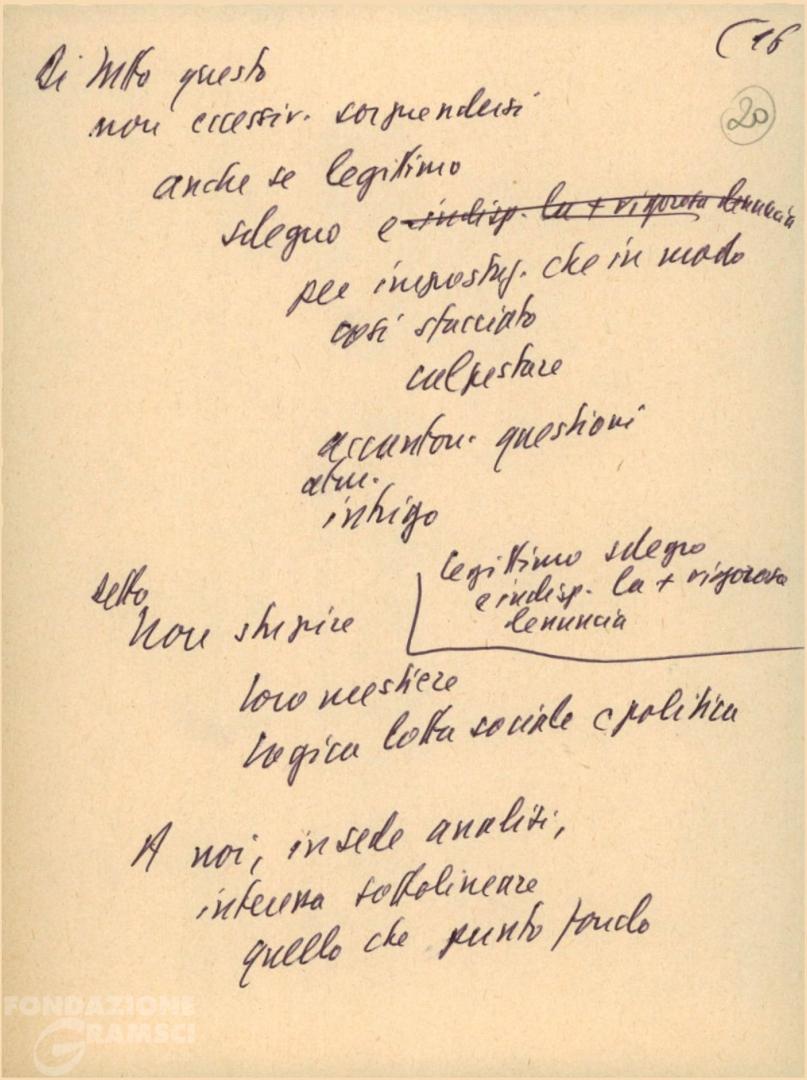 (16
20
Di tutto questo
non eccessiv. sorprendersi
anche se legittimo
sdegno e indisp. la + rigorosa denuncia
per impostaz. che in modo
così sfacciato
calpestare
accanton. questioni
atm.
intrigo
legittimo sdegno
e indisp. la + rigorosa
denuncia
Detto
Non stupire
loro mestiere
logica lotta sociale e politica
A noi, in sede analisi,
interessa sottolineare
quello che punto fondo
FONDAZIONE
GRAMSCI